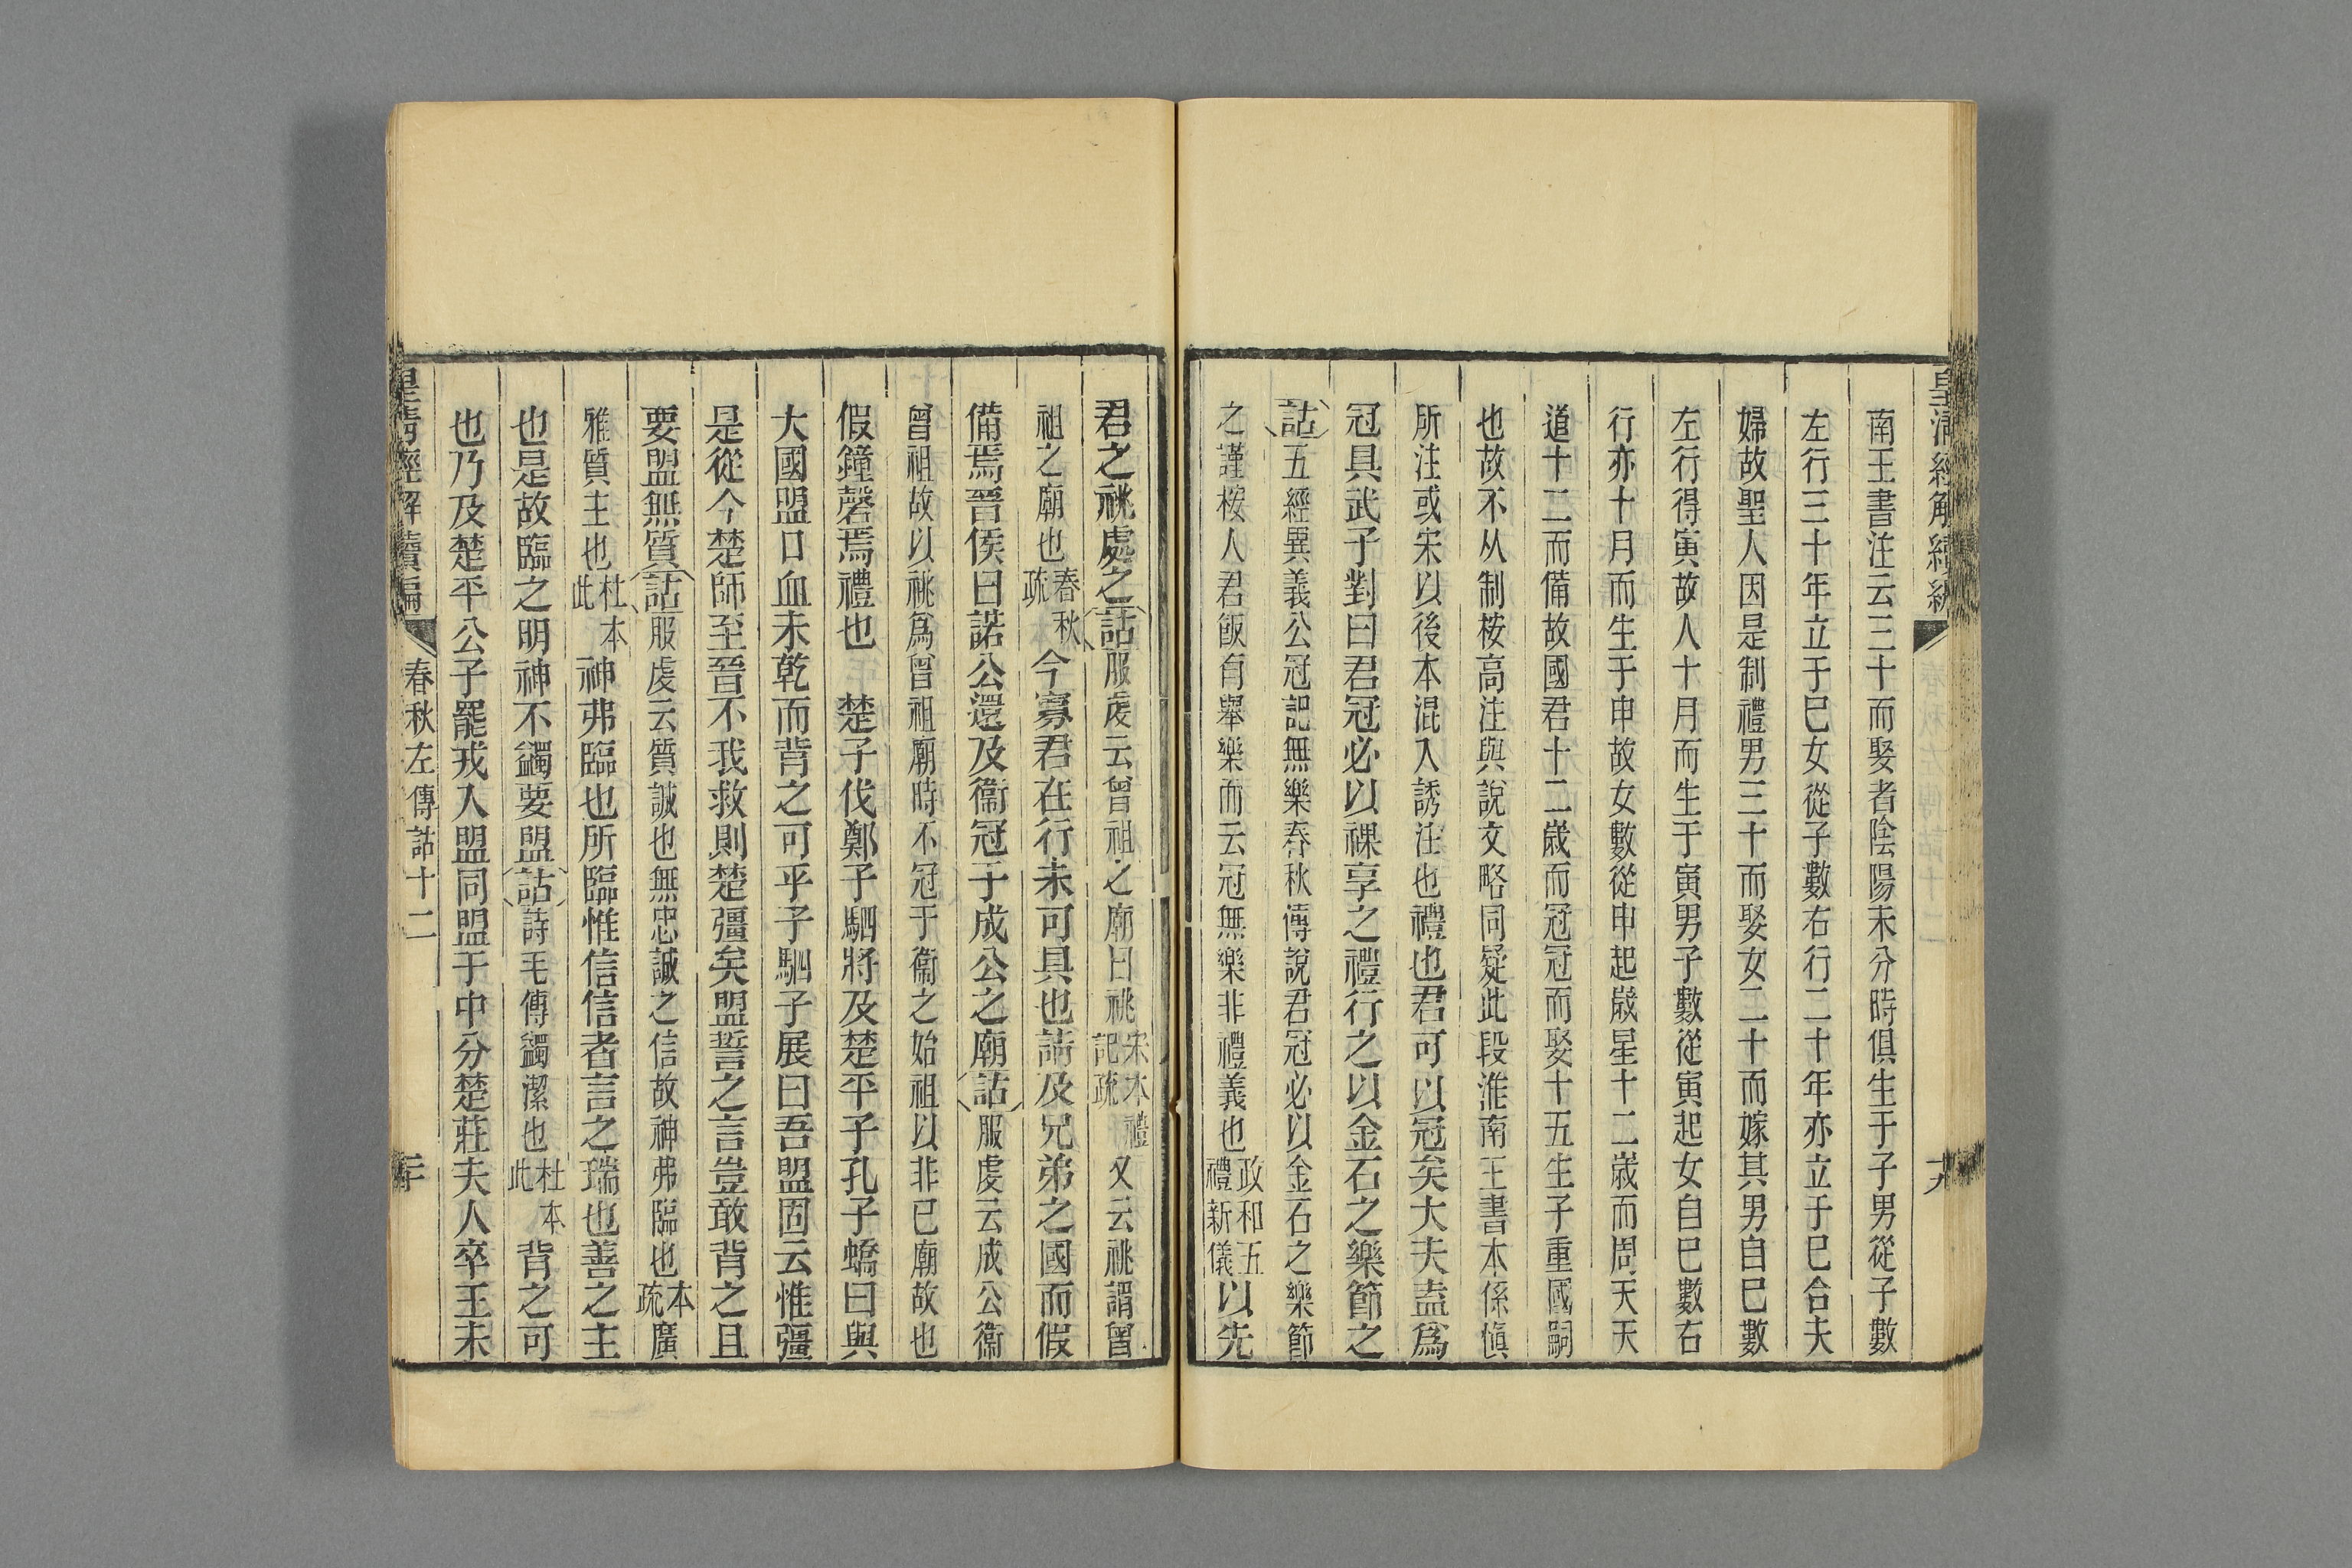 皇清經解續編
南王書注云三十而娶者陰陽未分時俱生于子男從子數
左行三十年立于巳女從子數右行二十年亦立于巳合夫
婦故聖人因是制禮男三十而娶女二十而嫁其男自巳數
左行得寅故人十月而生于寅男子數從寅起女自巳數右
行亦十月而生于申故女數從申起歲星十二歲而周天天
道十二而備故國君十二歲而冠冠而娶十五生子重國嗣
也故不从制桉高注與說文略同疑此段淮南王書本係愼
所注或宋以後本混入誘注也禮也君可以冠矣大夫盍爲
冠具武子對曰君冠必以祼享之禮行之以金石之樂節之
詁五經異義公冠記無樂春秋傳說君冠必以金石之樂節
之謹桉人君飯有舉樂而云冠無樂非禮義也政和五禮新儀以先
君之祧處之詁服虔云曾祖之廟曰祧宋本禮記疏又云祧謂曾
祖之廟也春秋疏今寡君在行未可具也請及兄弟之國而假
備焉晉侯曰諾公還及衞冠于成公之廟詁服虔云成公衞
曾祖故以祧爲曾祖廟時不冠于衞之始祖以非已廟故也
假鐘磬焉禮也　楚子伐鄭子駟將及楚平子孔子蟜曰與
大國盟口血未乾而背之可乎子駟子展曰吾盟固云惟彊
是從今楚師至晉不我救則楚彊矣盟誓之言豈敢背之且
要盟無質詁服虔云質誠也無忠誠之信故神弗臨也本疏廣
雅質主也杜本此神弗臨也所臨惟信信者言之瑞也善之主
也是故臨之明神不蠲要盟詁詩毛傳蠲潔也杜本此背之可
也乃及楚平公子罷戎入盟同盟于中分楚莊夫人卒王未
皇清經解續編　春秋左傳詁十二